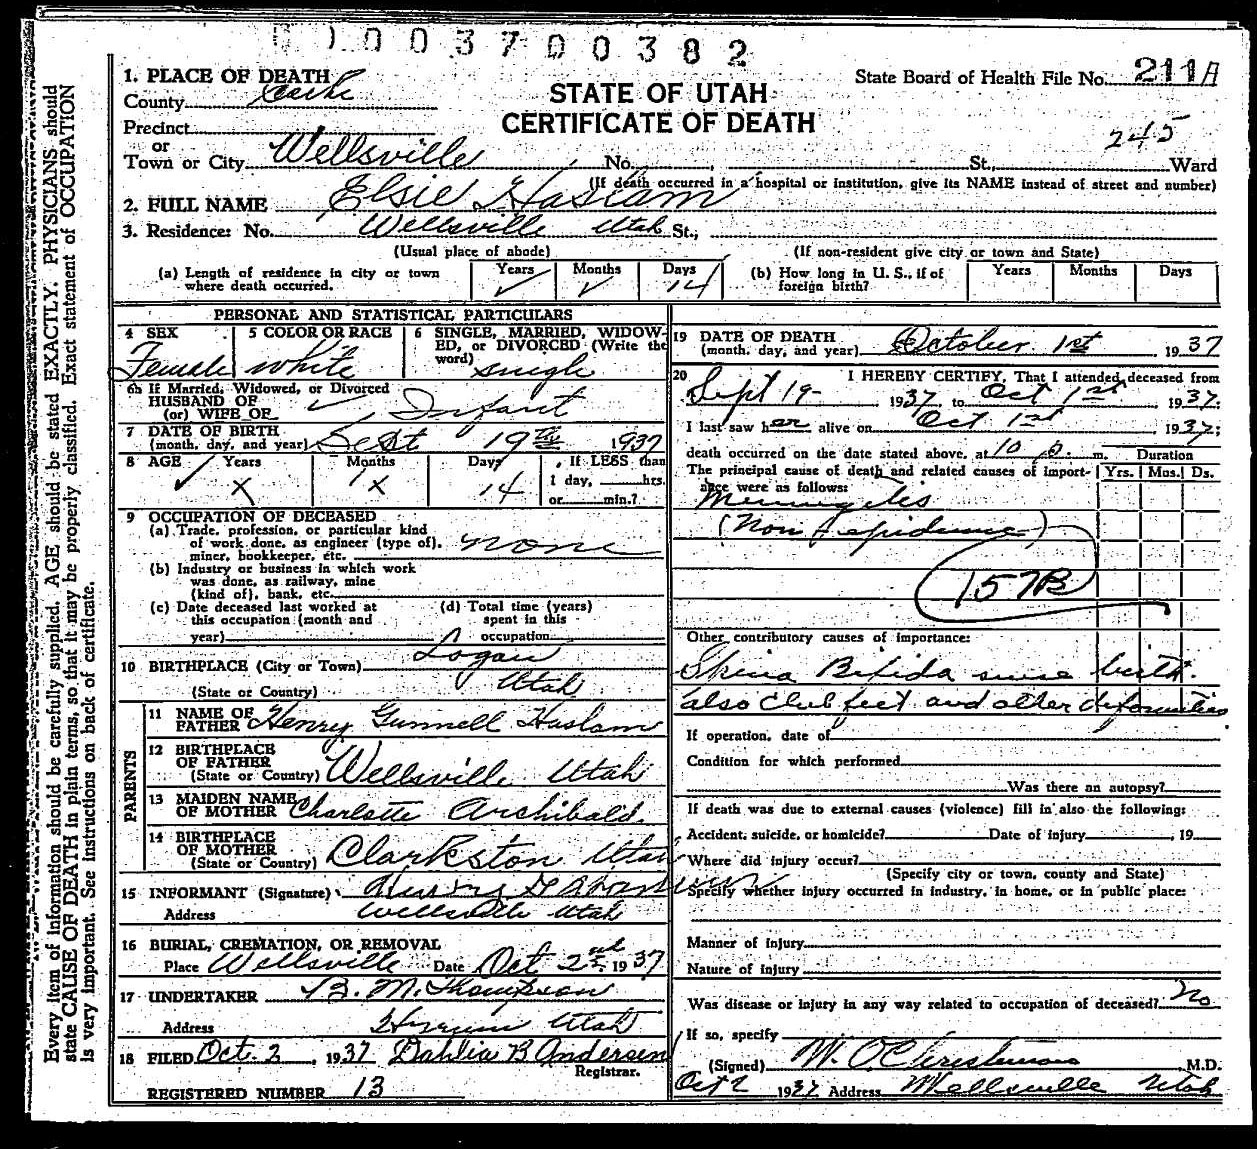 1003700382
1. PLACE OF DEATH
County Cache
STATE OF UTAH
CERTIFICATE OF DEATH
State Board of Health File No. 211A
245
Precinct
or
Town or City Wellsville No. St. Ward
(If death occurred in a hospital or institution, give its NAME instead of street and number)
2. FULL NAME Elsie Haslam
3. Residence: No. Wellsville Utah St.,
(Usual place of abode) (If non-resident give city or town and State)
(a) Length of residence in city or town where death occurred. Years ✓ Months ✓ Days 14
(b) How long in U. S., if of foreign birth? Years Months Days
PERSONAL AND STATISTICAL PARTICULARS
4 SEX Female
5 COLOR OR RACE white
6 SINGLE, MARRIED, WIDOWED, or DIVORCED (Write the word) single
6a If Married, Widowed, or Divorced
HUSBAND OF
(or) WIFE OF ✓ Infant
7 DATE OF BIRTH
(month, day, and year) Sept 19th 1937
8 AGE ✓ Years X Months X Days 14 If LESS than
1 day, hrs.
or min.?
9 OCCUPATION OF DECEASED
(a) Trade, profession, or particular kind
of work done, as engineer (type of),
miner, bookkeeper, etc. none
(b) Industry or business in which work
was done, as railway, mine
(kind of), bank, etc.
(c) Date deceased last worked at
this occupation (month and
year)
(d) Total time (years)
spent in this
occupation
10 BIRTHPLACE (City or Town) Logan
(State or Country) Utah
PARENTS
11 NAME OF
FATHER Henry Gunnell Haslam
12 BIRTHPLACE
OF FATHER
(State or Country) Wellsville Utah
13 MAIDEN NAME
OF MOTHER Charlotte Archibald.
14 BIRTHPLACE
OF MOTHER
(State or Country) Clarkston Utah
15 INFORMANT (Signature) Henry G Haslam
Address Wellsville Utah
16 BURIAL, CREMATION, OR REMOVAL
Place Wellsville Date Oct 2nd 1937
17 UNDERTAKER B. M. Thompson
Address Hyrum Utah
18 FILED Oct. 2, 1937 Dahlia B Andersen
Registrar.
REGISTERED NUMBER 13
19 DATE OF DEATH
(month, day, and year) October 1st 1937
20 I HEREBY CERTIFY, That I attended deceased from
Sept 19- 1937, to Oct 1st 1937.
I last saw her alive on Oct 1st 1937;
death occurred on the date stated above, at 10 p. m. Duration
The principal cause of death and related causes of importance were as follows: Yrs. Mos. Ds.
Meningitis
(Non epidemic)
157B
Other contributory causes of importance:
Spina Bifida since birth.
also club feet and other deformities
If operation, date of
Condition for which performed
Was there an autopsy?
If death was due to external causes (violence) fill in also the following:
Accident, suicide, or homicide? Date of injury , 19
Where did injury occur?
(Specify city or town, county and State)
Specify whether injury occurred in industry, in home, or in public place:
Manner of injury
Nature of injury
Was disease or injury in any way related to occupation of deceased? No
If so, specify
(Signed) W. O. Christensen M.D.
Oct 2 1937 Address Wellsville Utah
Every item of information should be carefully supplied. AGE should be stated EXACTLY. PHYSICIANS should
state CAUSE OF DEATH in plain terms, so that it may be properly classified. Exact statement of OCCUPATION
is very important. See instructions on back of certificate.